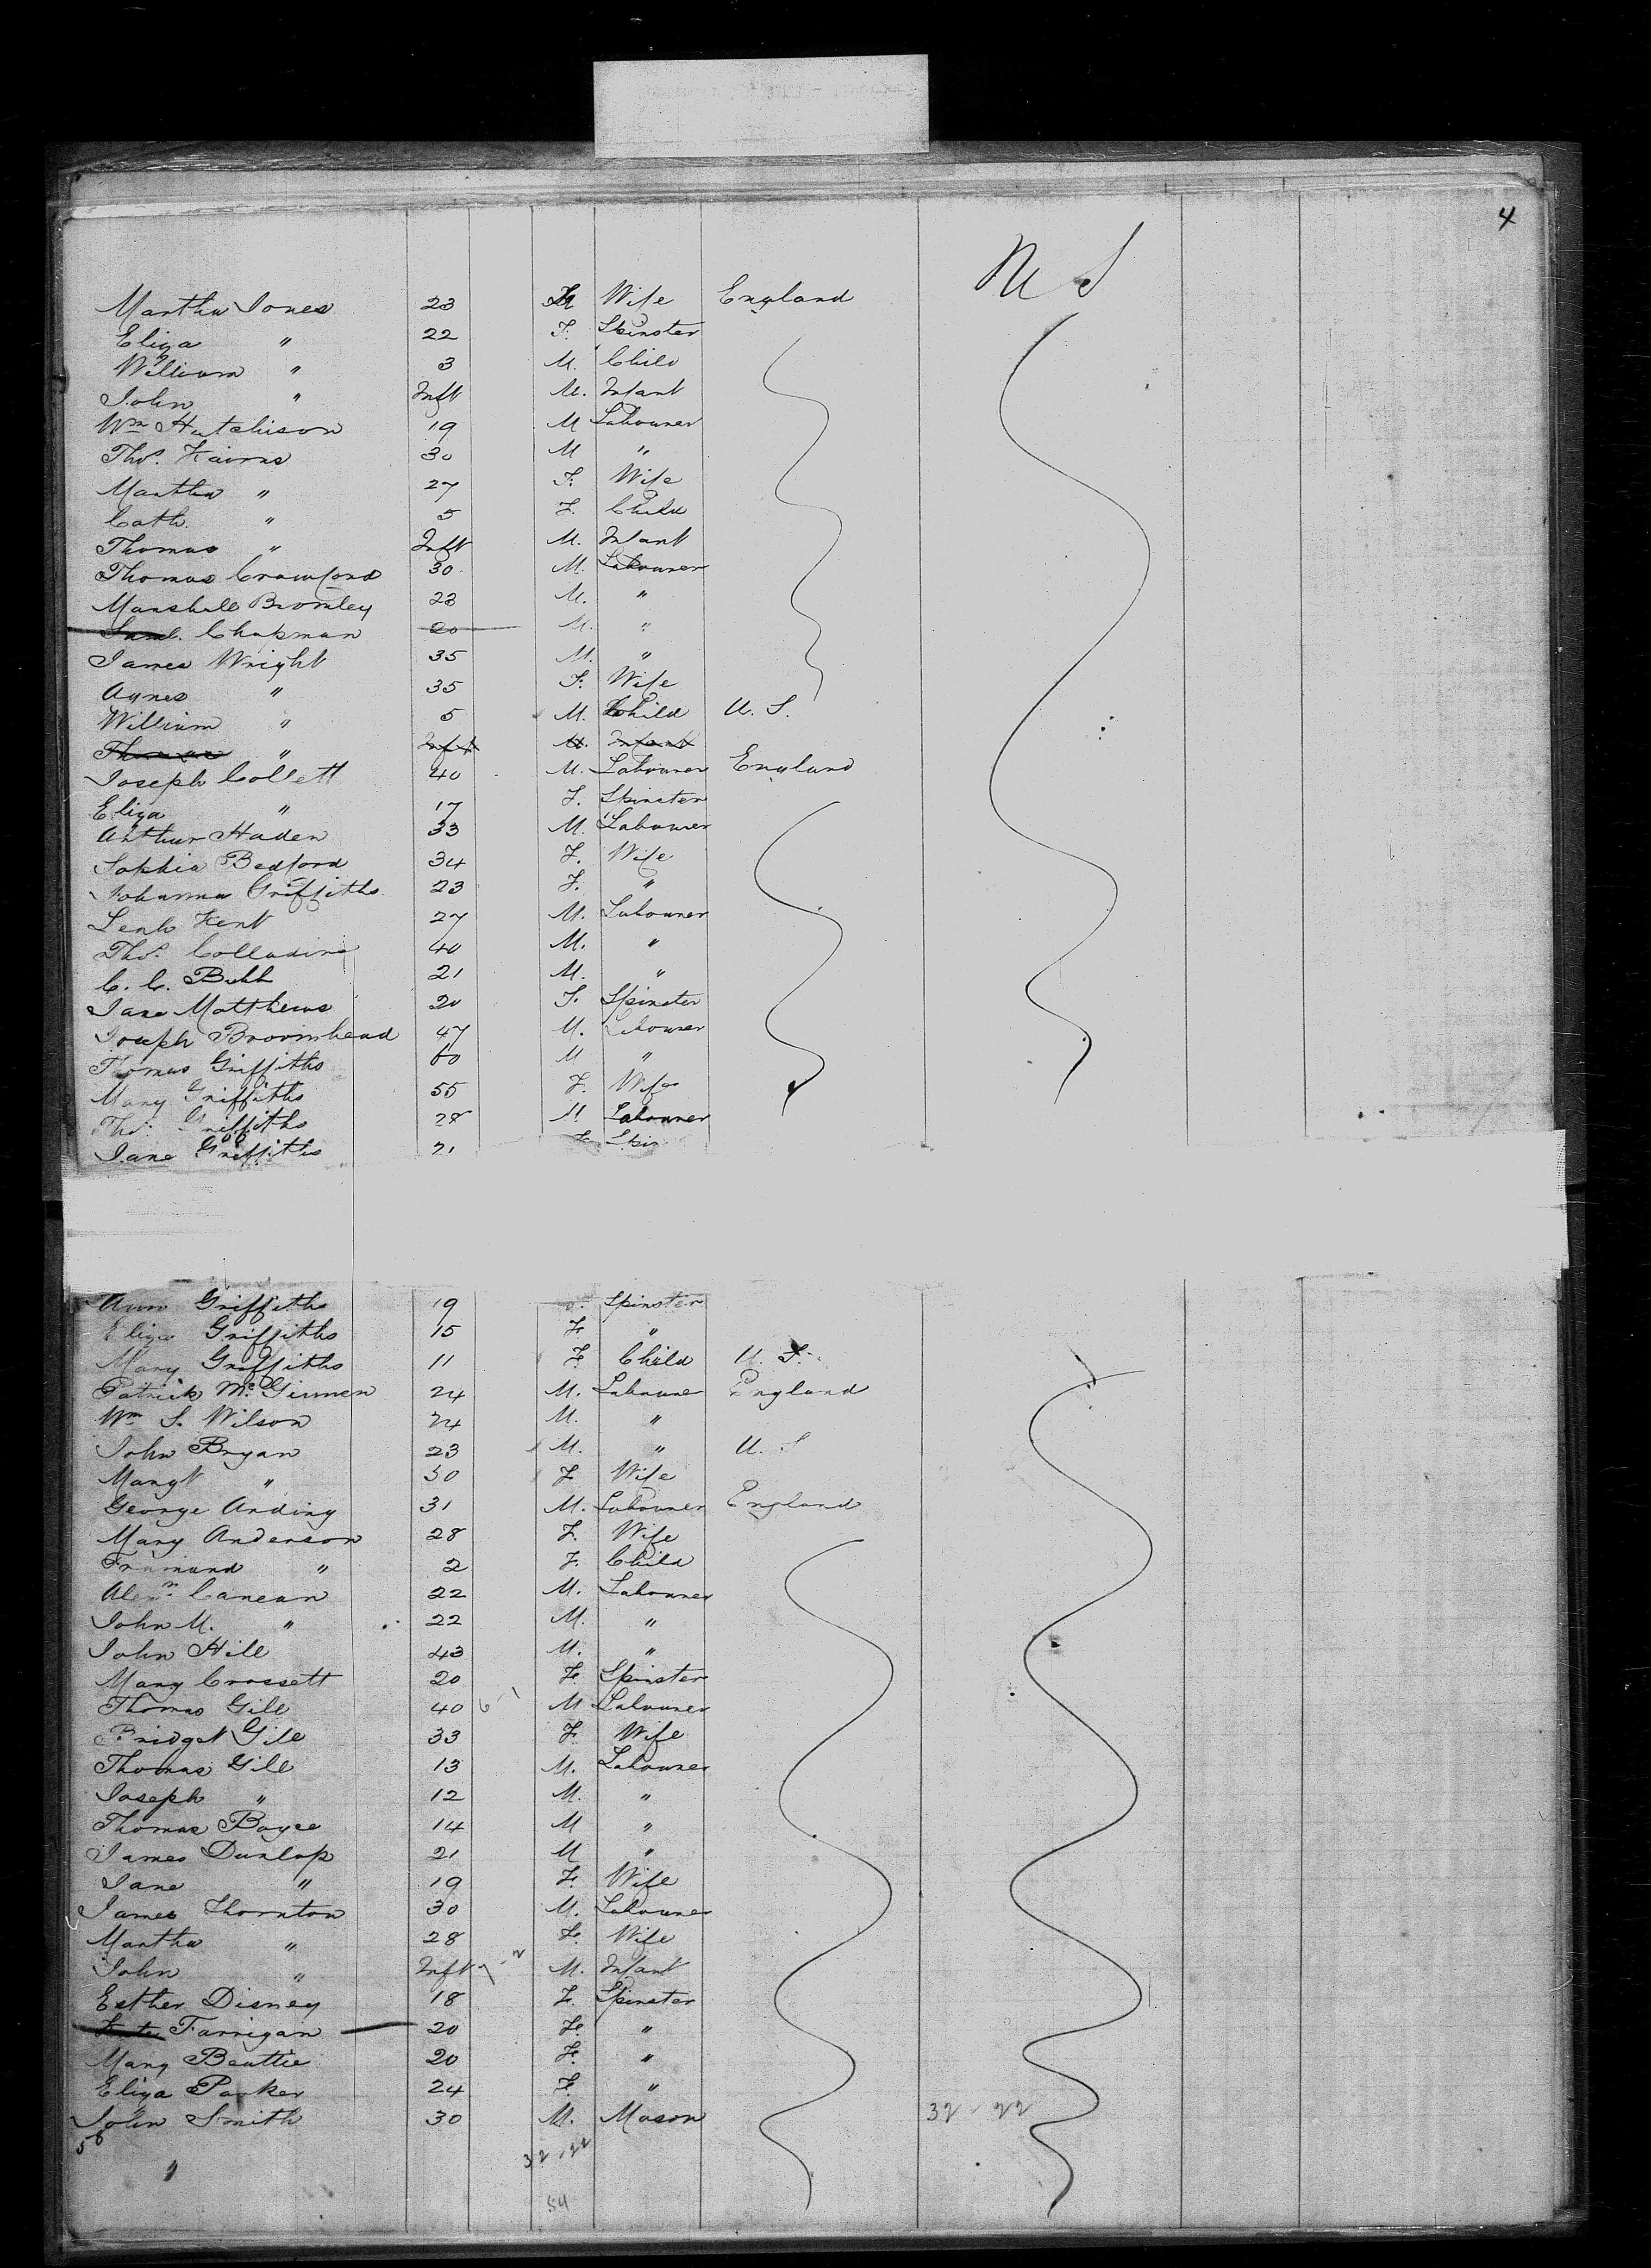 4
U S
Martha Jones 23 F Wife England
Eliza " 22 F. Spinster
William " 3 M. Child
John " Inft M. Infant
Wm Hutchison 19 M Labourer
Thos. Kairns 30 M "
Martha " 27 F. Wife
Cath. " 5 F. Child
Thomas " Inft M. Infant
Thomas Crawford 30 M. Labourer
Marshall Bromley 23 M. "
Saml. Chapman 20 M. "
James Wright 35 M. "
Agnes " 35 F. Wife
William " 5 M. Child U. S.
Thomas " Inft M. Infant
Joseph Collett 40 M. Labourer England
Eliza " 17 F. Spinster
Arthur Haden 33 M. Labourer
Sophia Bedford 34 F. Wife
Johanna Griffiths 23 F. "
Kent 27 M. Labourer
Thos. Colladine 40 M. "
C. C. Bubb 21 M. "
Jane Matthews 20 F. Spinster
Joseph Broomhead 47 M. Labourer
Thomas Griffiths 60 M "
Mary Griffiths 55 F. Wife
Thos. Griffiths 28 M Labourer
Jane Griffiths 21 F. Spin
Ann Griffiths 19 F. Spinster
Eliza Griffiths 15 F. "
Mary Griffiths 11 F. Child U. S.
Patrick McGinnen 24 M. Labourer England
Wm S. Wilson 24 M. "
John Bryan 23 M. " U. S
Margt " 30 F. Wife
George Anding 31 M. Labourer England
Mary Anderson 28 F. Wife
" 2 F. Child
Alexr. Canean 22 M. Labourer
John M. " 22 M. "
John Hill 43 M. "
Mary Crossett 20 F. Spinster
Thomas Gill 40 6-1 M Labourer
Bridget Gill 33 F. Wife
Thomas Gill 13 M. Labourer
Joseph " 12 M. "
Thomas Boyce 14 M "
James Dunlop 21 M "
Jane " 19 F. Wife
James Thornton 30 M. Labourer
Martha " 28 F. Wife
John " Inft M. Infant
Esther Disney 18 F. Spinster
Kate Farrigan 20 F. "
Mary Beattie 20 F. "
Eliza Parker 24 F. "
John Smith 30 M. Mason 32-22
58
32-22
"
54